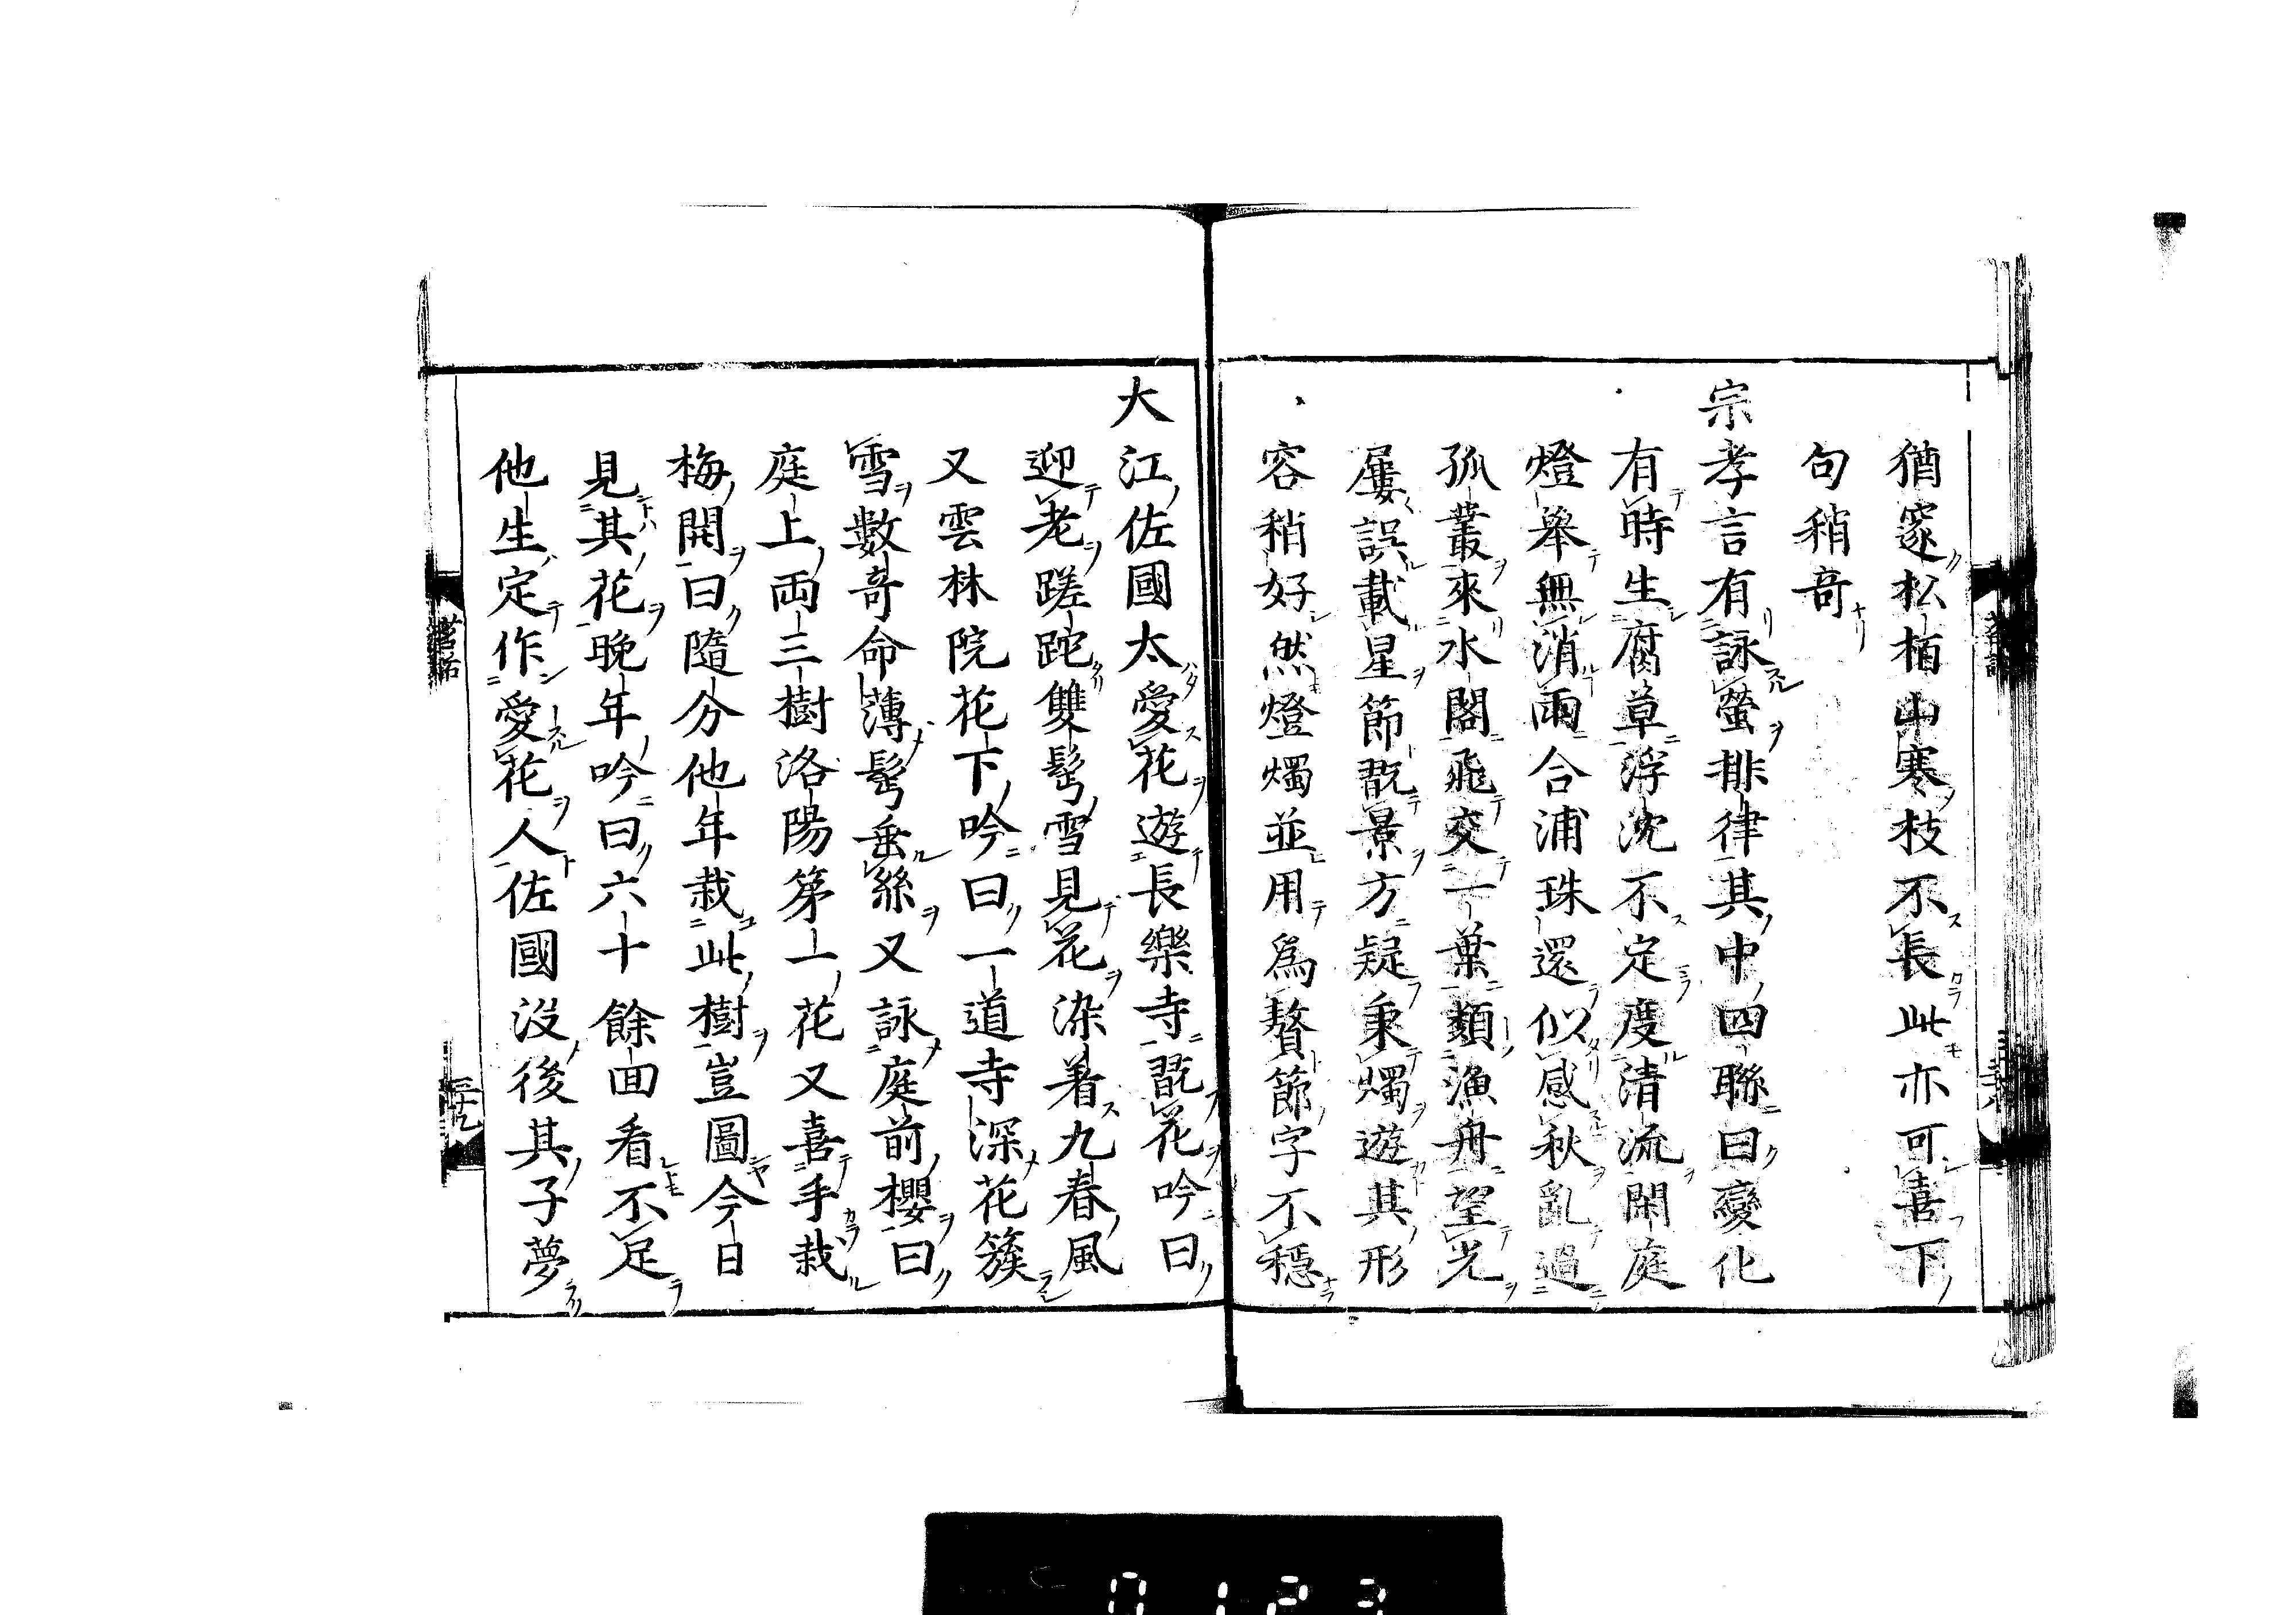 猶邃松栢山寒枝不長此亦可喜下
句稍奇
宗孝言有詠螢排律其中四聯曰變化
有時生腐草浮沈不定度清流閑庭
燈舉無消雨合浦珠還似感秋亂過
孤叢來水閣飛交一葉類漁舟望光
屢誤載星節翫景方疑秉燭遊其形
容稍好然燈燭並用爲贅節字不穩
大江佐國太愛花遊長樂寺翫花吟曰
迎老蹉跎雙鬢雪見花染着九春風
又雲林院花下吟曰一道寺深花簇
雪數奇命薄鬢垂絲又詠庭前櫻曰
庭上両三樹洛陽第一花又喜手栽
梅開曰隨分他年栽此樹豈圖今日
見其花晚年吟曰六十餘回看不足
他生定作愛花人佐國沒後其子夢
三十九
0123